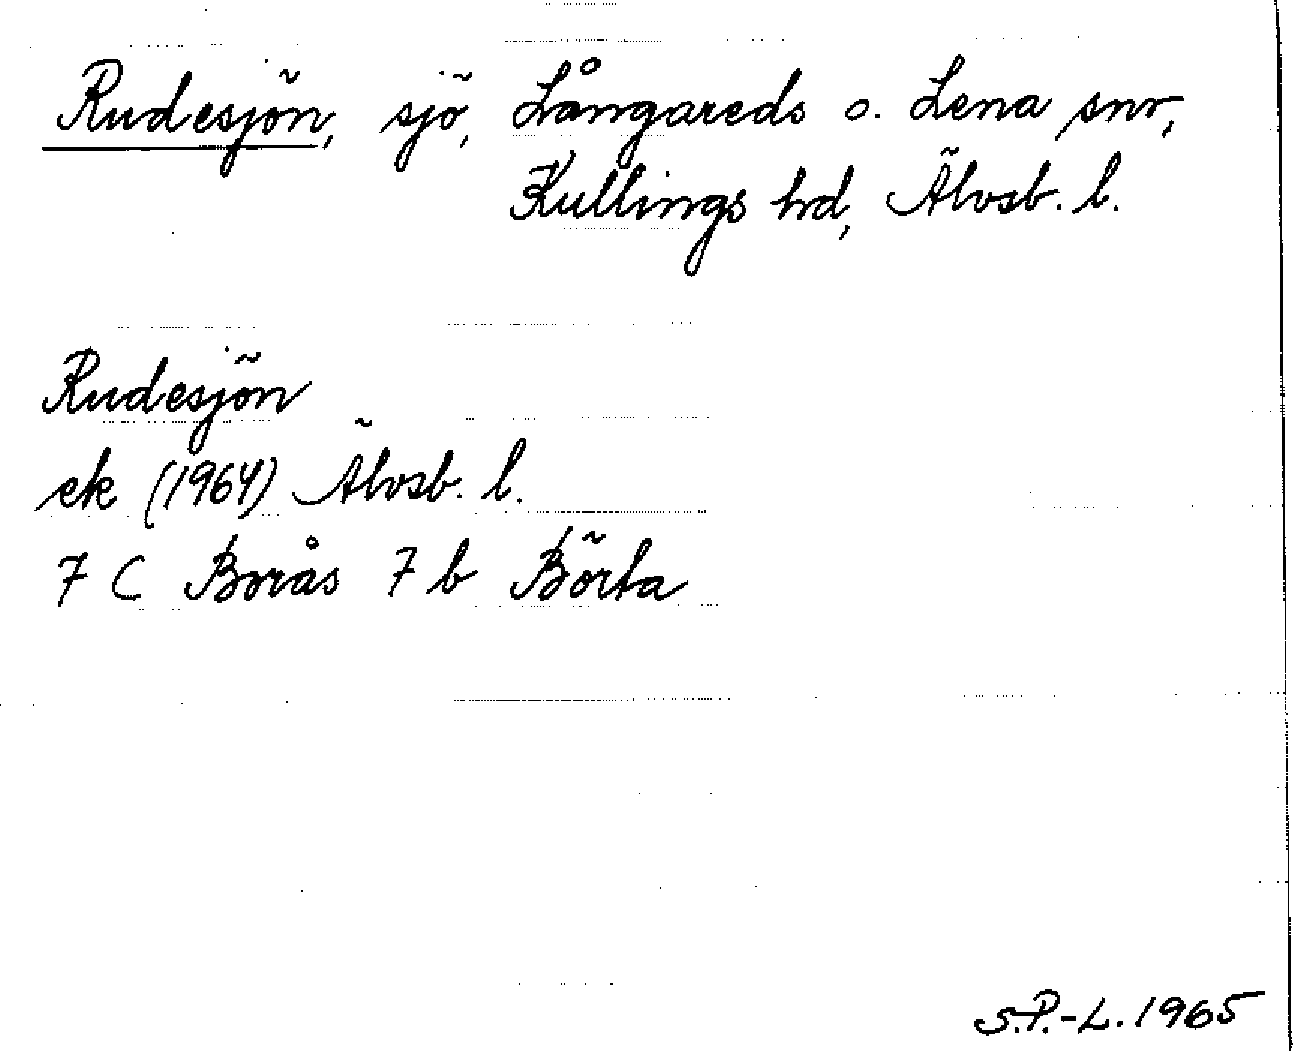 Rudesjön, sjö, Långareds o. Lena snr,
Kullings hd, Älvsb. l.
Rudesjön
ek (1964) Älvsb. l.
7 C Borås 7 b Börta
S.P.-L. 1965